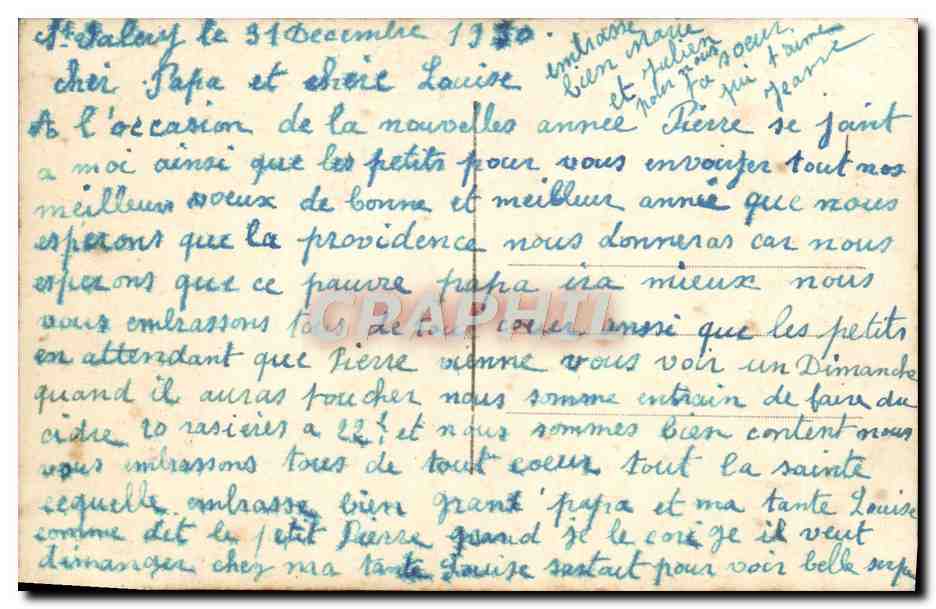 St Valery le 31 Decembre 1930.
cher Papa et chère Louise
A l'occasion de la nouvelles année Pierre se joint
a moi ainsi que les petits pour vous envoiyer tout nos
meilleurs voeux de bonne et meilleur année que nous
espérons que la providence nous donneras car nous
esperons que ce pauvre papa ira mieux nous
vous embrassons tous de tout coeur aussi que les petits
en attendant que Pierre vienne vous voir un Dimanche
quand il auras toucher nous somme entrain de faire du
cidre 20 rasières a 22f et nous sommes bien content nous
vous embrassons tous de tout coeur tout la sainte
sequelle embrasse bien grand papa et ma tante Louise
comme dit le petit Pierre quand je le corige il veut
dimanger chez ma tante Louise surtout pour voir belle
embrasse
bien Marie
et Julien
pour nous
sa soeur
qui t'aime
Jeanne
CRAPHIL